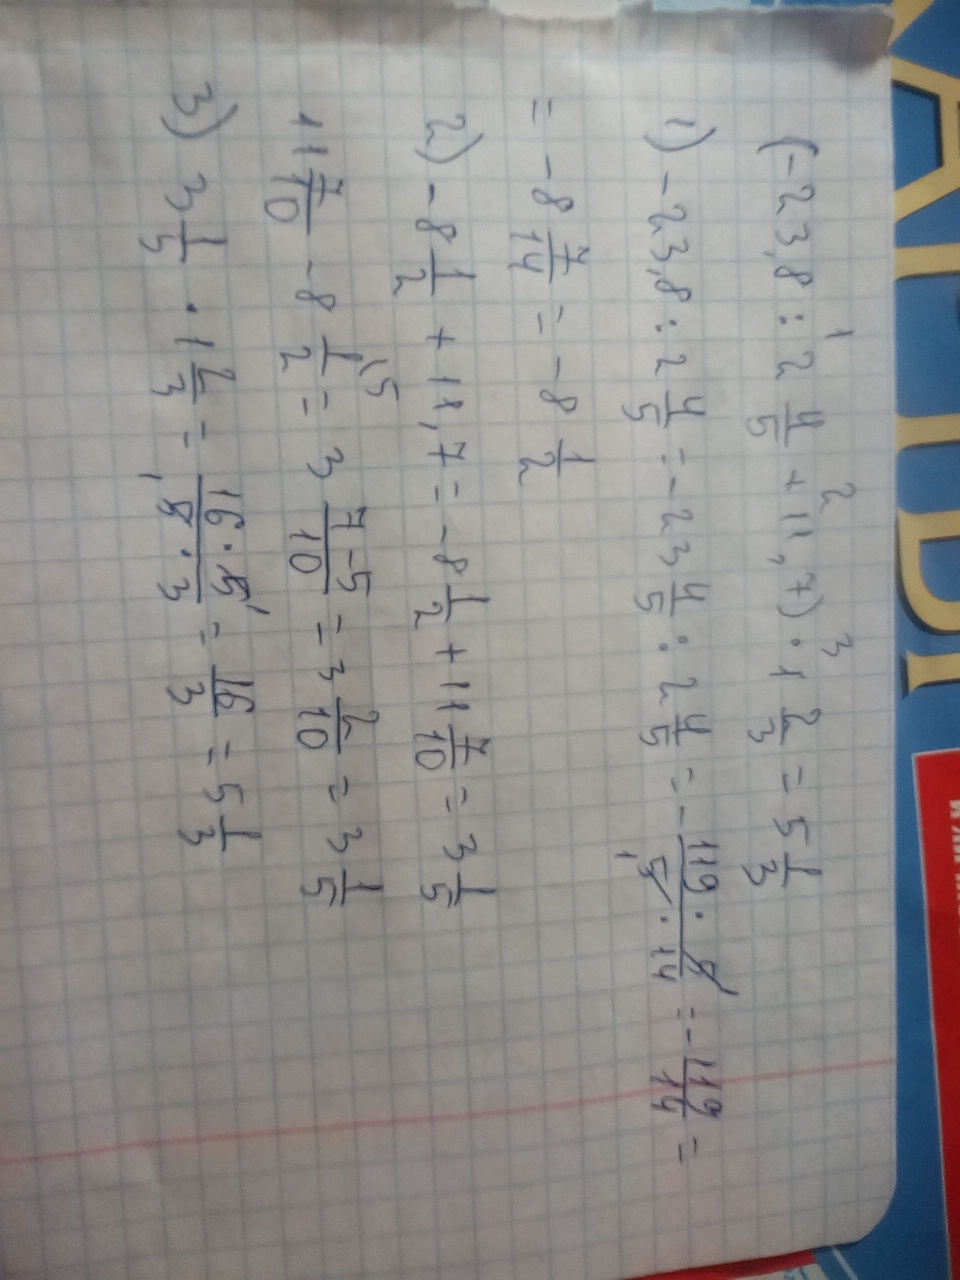 (-23,8 : 2 4/5 + 11,7) · 1 2/3 = 5 1/3
1 2 3
1) -23,8 : 2 4/5 = -23 4/5 : 2 4/5 = - 119 · 5 / 5 · 14 = - 119/14 =
= -8 7/14 = -8 1/2
2) -8 1/2 + 11,7 = -8 1/2 + 11 7/10 = 3 1/5
11 7/10 - 8 1/2 = 3 7-5/10 = 3 2/10 = 3 1/5
3) 3 1/5 · 1 2/3 = 16 · 5 / 5 · 3 = 16/3 = 5 1/3